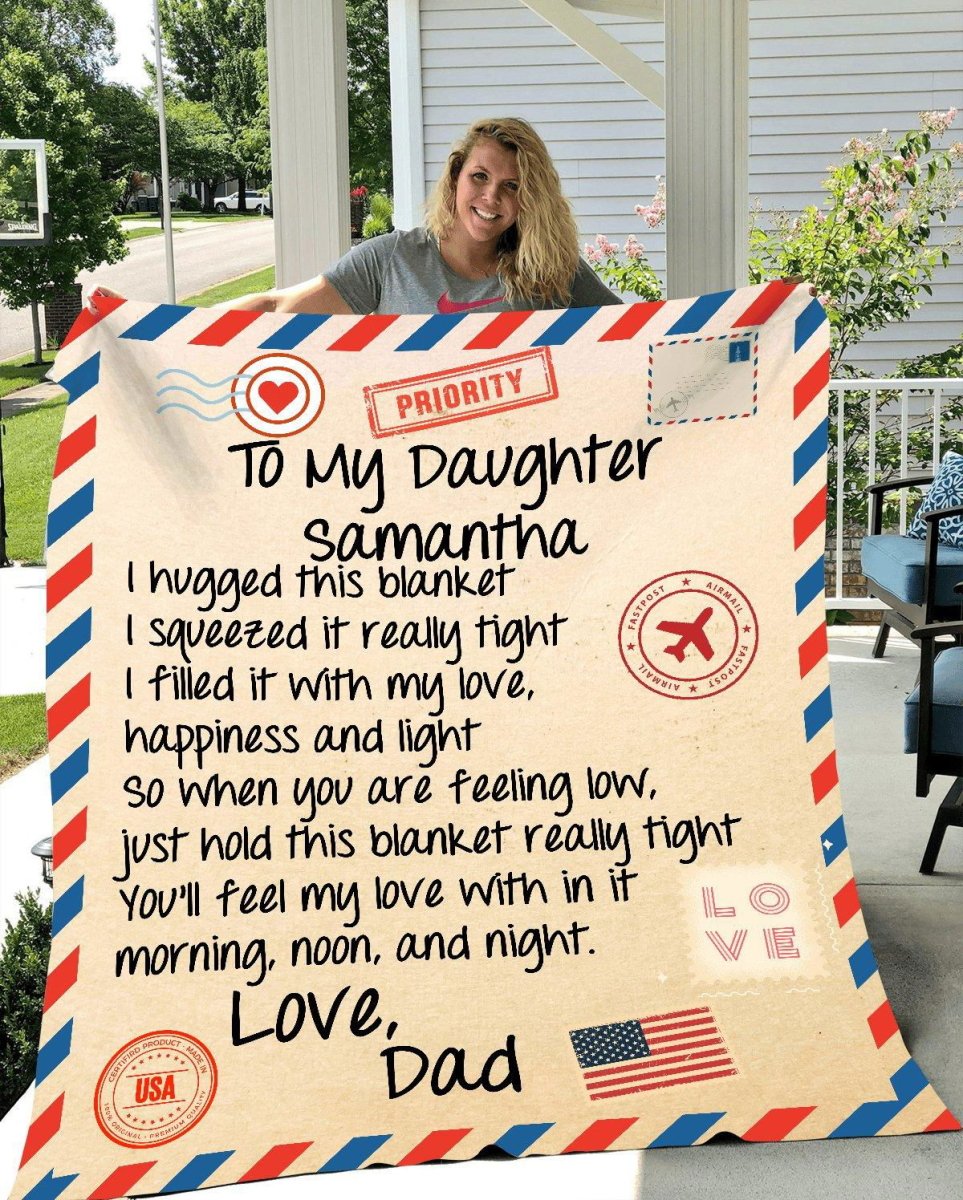 SPALDING
PRIORITY
To My Daughter
Samantha
I hugged this blanket
I squeezed it really tight
FASTPOST ★ AIRMAIL ★ FASTPOST ★ AIRMAIL ★
I filled it with my love,
happiness and light
so when you are feeling low,
just hold this blanket really tight
You'll feel my love with in it
morning, noon, and night.
LO
VE
Love,
Dad
CERTIFIRD PRODUCT · MADE IN
USA
100% ORIGINAL · PREMIUM QUALITY